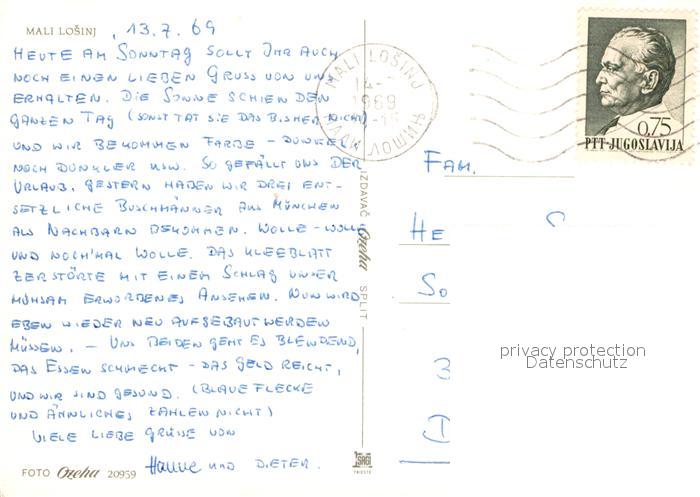 MALI LOŠINJ, 13.7.69
HEUTE AM SONNTAG SOLLT IHR AUCH
NOCH EINEN LIEBEN GRUSS VON UNS
ERHALTEN. DIE SONNE SCHIEN DEN
GANZEN TAG (SONST TAT SIE DAS BISHER NICHT)
UND WIR BEKOMMEN FARBE - DUNKEL
NOCH DUNKLER USW. SO GEFÄLLT UNS DER
URLAUB. GESTERN HABEN WIR DREI ENT-
SETZLICHE BUSCHMÄNNER AUS MÜNCHEN
ALS NACHBARN BEKOMMEN. WOLLE - WOLLE
UND NOCH'MAL WOLLE. DAS KLEEBLATT
ZERSTÖRTE MIT EINEM SCHLAG UNSER
MÜHSAM ERWORBENES ANSEHEN. NUN WIRD
EBEN WIEDER NEU AUFGEBAUT WERDEN
MÜSSEN. - UNS BEIDEN GEHT ES BLENDEND,
DAS ESSEN SCHMECKT - DAS GELD REICHT,
UND WIR SIND GESUND. (BLAUE FLECKE
UND ÄHNLICHES ZÄHLEN NICHT)
VIELE LIEBE GRÜSSE VON
Hanne UND DIETER.
FOTO Ozeha 20959
IZDAVAČ Ozeha SPLIT
MALI LOŠINJ
1969
МАЛИ ЛОШИЊ
0,75
PTT-JUGOSLAVIJA
FAM.
HE
SO
3
D
privacy protection
Datenschutz